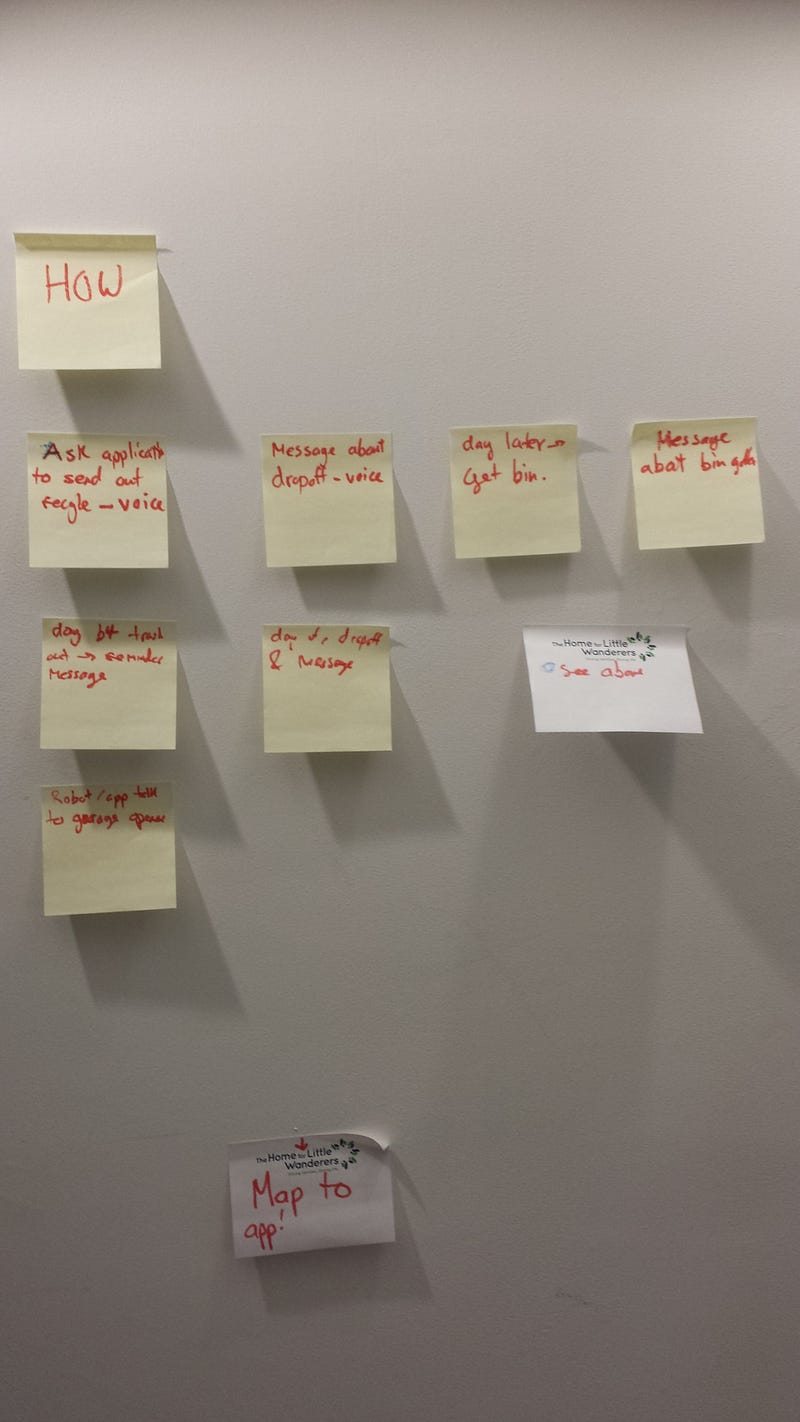 HOW
Ask applicatn
to send out
recycle - voice
Message about
dropoff - voice
day later →
Get bin.
Message
abat bin
day b4 trash
out → reminder
Message
day of, dropoff
& Message
The Home for Little
Wanderers
see above
Robot/app talk
to garage opener
The Home for Little
Wanderers
Map to
app!